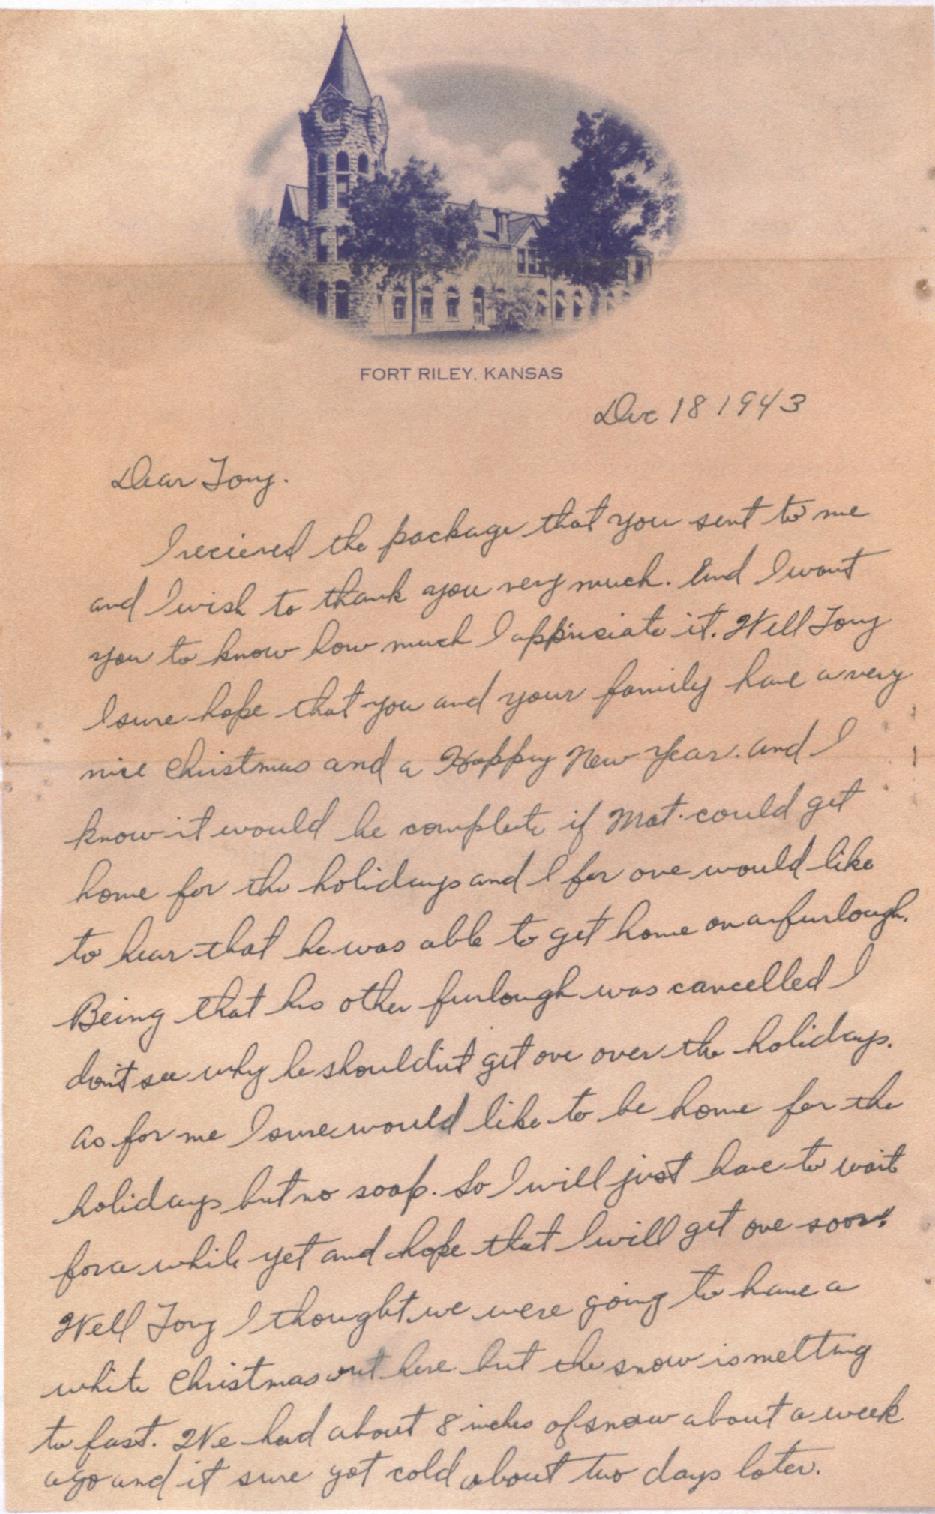 FORT RILEY, KANSAS
Dec 18 1943
Dear Tony.
I recieved the package that you sent to me
and I wish to thank you very much. And I want
you to know how much I appriciate it. Well Tony
I sure hope that you and your family have a very
nice Christmas and a Happy New Year. and I
know it would be complete if Mat. could get
home for the holidays and I for one would like
to hear that he was able to get home on a furlough.
Being that his other furlough was cancelled I
don't see why he shouldn't get one over the holidays.
as for me I sure would like to be home for the
holidays but no soap. So I will just have to wait
for a while yet and hope that I will get one soon.
Well Tony I thought we were going to have a
white Christmas out here but the snow is meltting
to fast. We had about 8 inches of snow about a week
ago and it sure got cold about two days later.